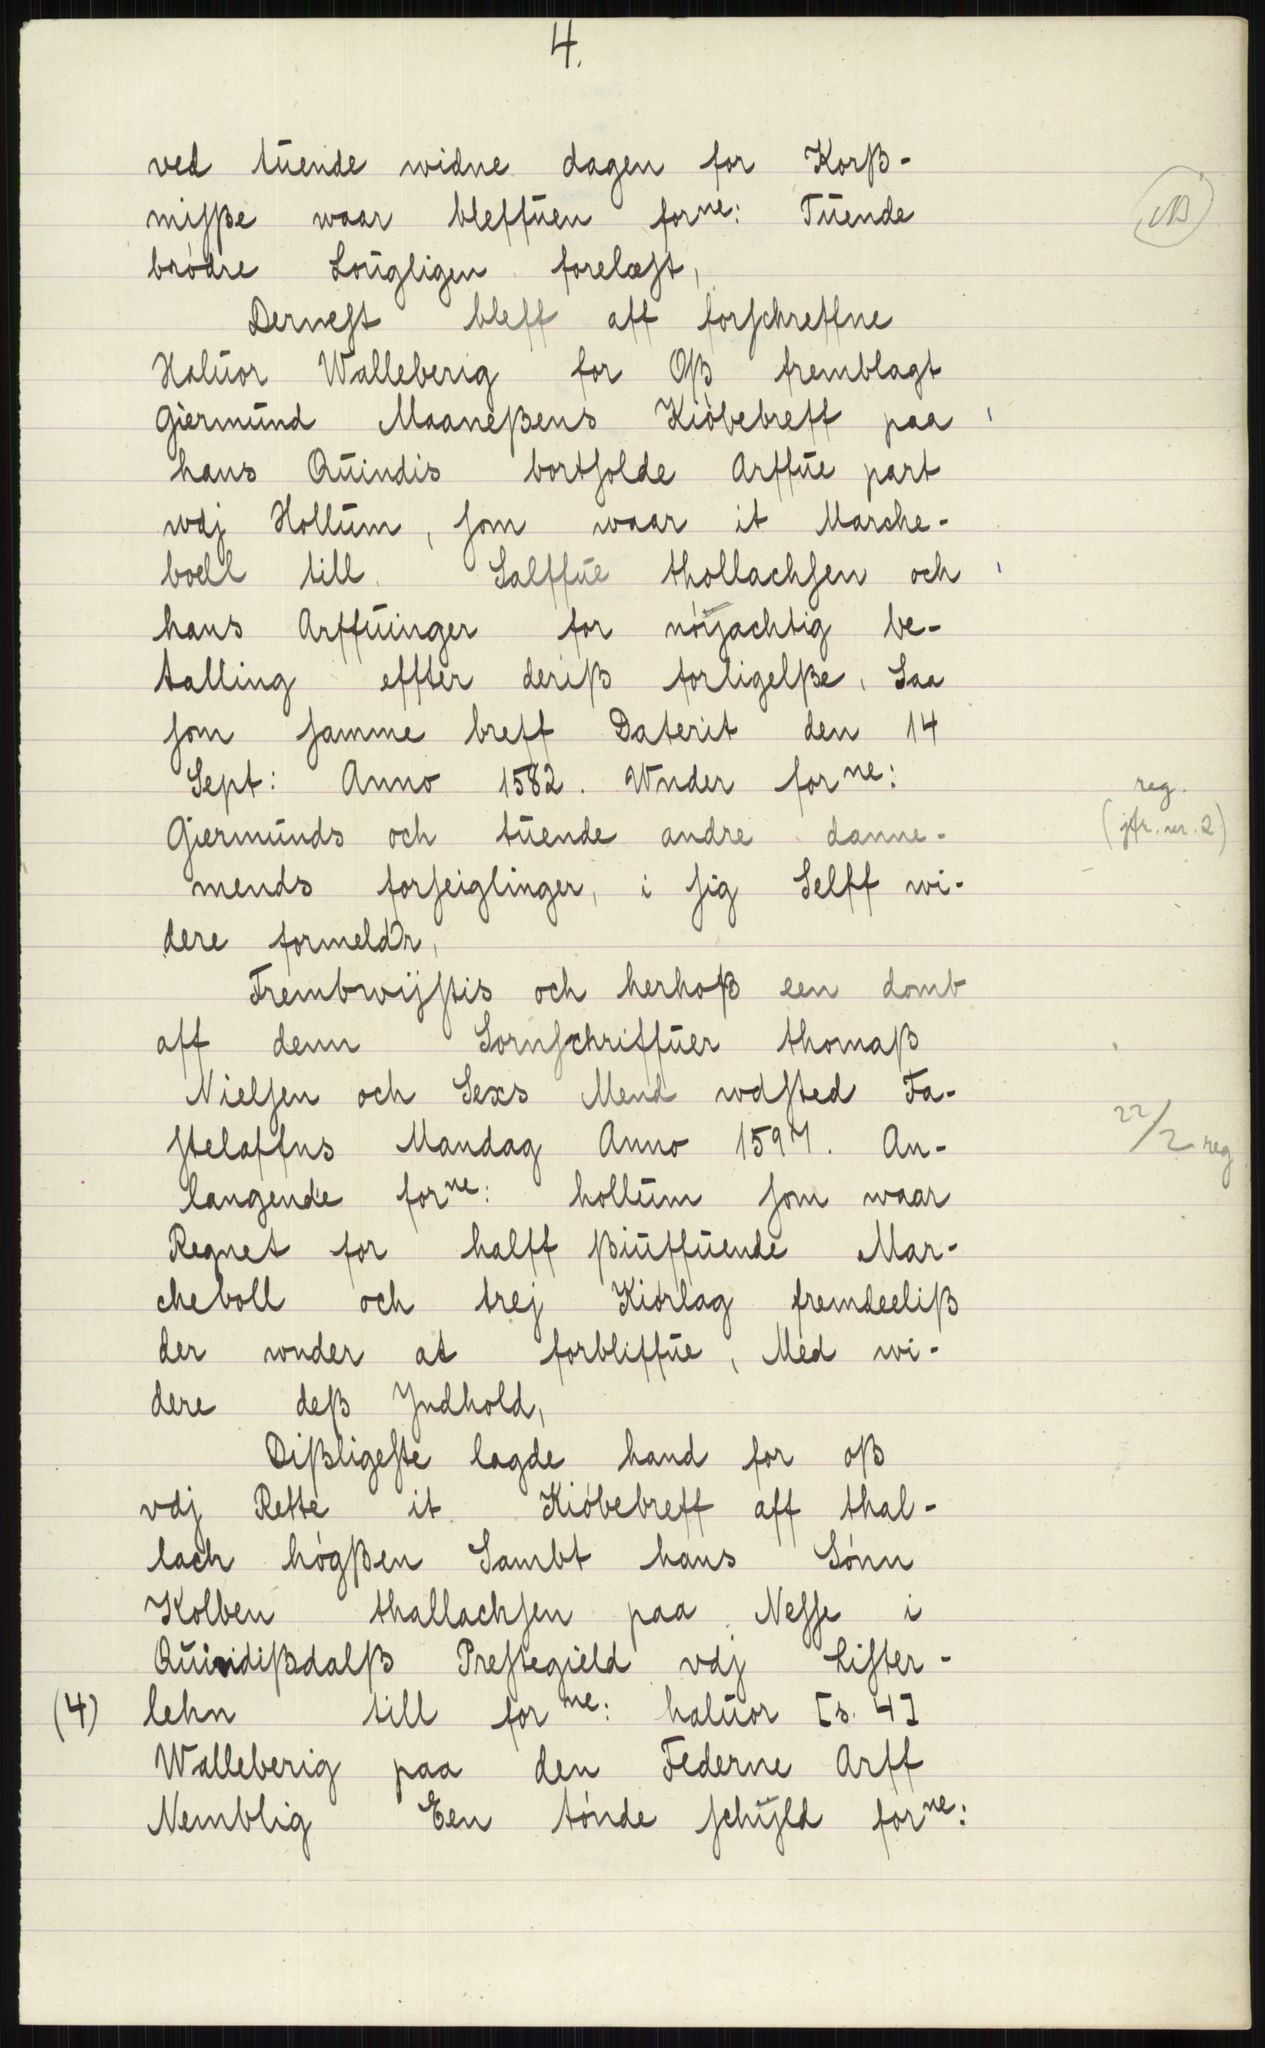 4.
ved tűende widne dagen for Korß-
misße waar bleffűen forne: Tűende
NB
brödre Loűgligen forelæst,
Dernest bleff aff forschreffne
Halűor Walleberig for Oß fremblagt
Gierműnd Maaneßens Kiöbebreff paa
hans Qűindis bortsolde Arffűe part
wdj Hollűm, som waar it Marche-
boell till Salffűe thollachsen och
hans Arffűinger for nöÿachtig be-
talling effter deriß forligelße, Saa
som samme breff Daterit den 14
Sept: Anno 1582. Wnder forne:
reg.
Gierműnds och tűende andre danne-
(jfr. nr. 2)
mends forseiglinger, i sig Selff wi-
dere formeldr,
Frembwijstis och herhoß een domb
aff denn Sornschriffűer thomaß
Nielsen och Sexs Mend wdsted Fa-
22/2 reg
stelaffns Mandag Anno 1597. An-
langende forne: hollűm som waar
Regnet for halff ßiűffűende Mar-
cheboll och trej Kiörlag fremdeeliß
der wnder at forbliffűe, Med wi-
dere deß Jndhold,
Dißligeste lagde hand for oß
vdj Rette it Kiöbebreff aff thal-
lach högßen Sambt hans Sönn
Kolben thallachsen paa Nesse i
Qűindißdalß Prestegield vdj Lister-
(4) lehn till forne: halűor [s. 4]
Walleberig paa den Federne Arff
Nemblig Een tönde schÿld forne: